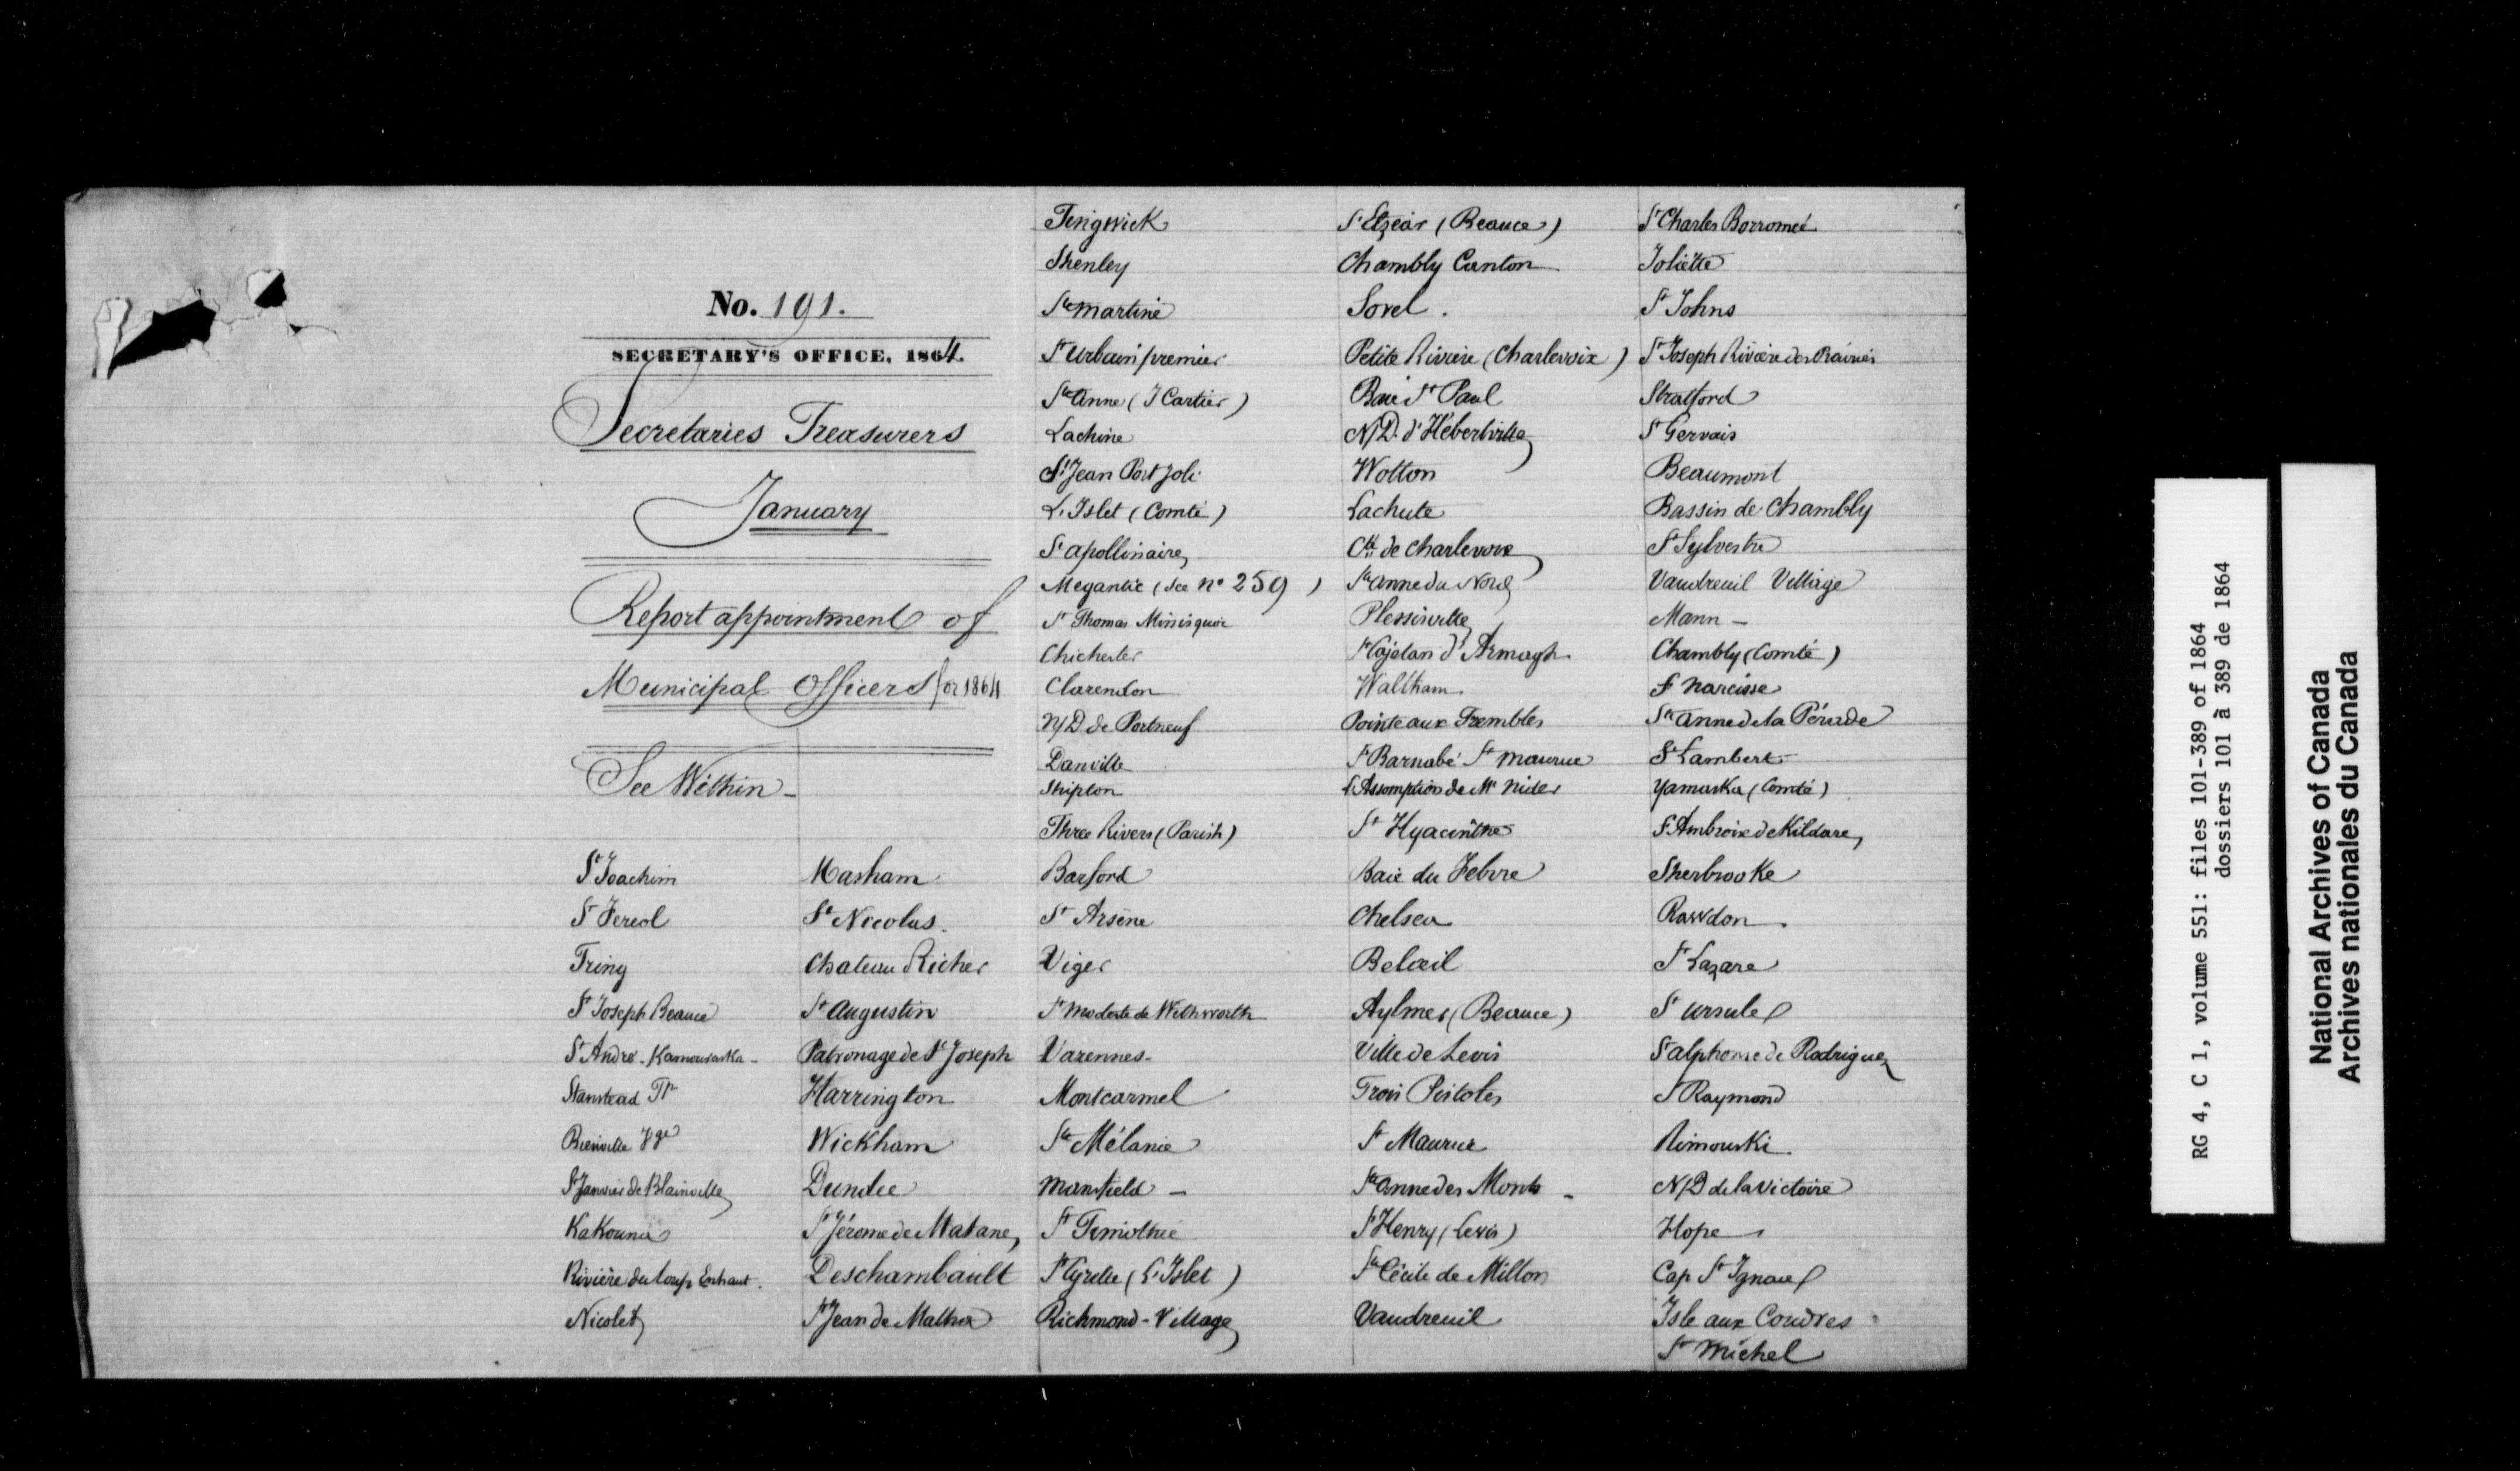 No. 191.
SECRETARY'S OFFICE, 1864.
Secretaries Treasurers
January
Report appointment of
Municipal Officers for 1864
See Within -
St Joachim
St Fereol
Tring
St Joseph Beauce
St André - Kamouraska -
Stanstead Tp
Bienville
St Janvier de Blainville
Kakouna
Rivière du Loup Enhaut.
Nicolet
Masham
St Nicolas.
Chateau Richer
St Augustin
Patronage de St Joseph
Harrington
Wickham
Dundee
St Jérome de Matane,
Deschambault
St Jean de Matha
Tingwick
Shenley
Ste Martine
St Urbain premier
Ste Anne (J Cartier)
Lachine
St Jean Port Joli
L'Islet (Comté)
St Apollinaire
Megantic (See No 259)
St Thomas Missisquoi
Chichester
Clarendon
N/D de Portneuf
Danville
Shipton
Three Rivers (Parish)
Barford
St Arsène
Viger
St Modeste de Withworth
Varennes -
Montcarmel
Ste Mélanie
Mansfield -
St Timothée
St Cyrille (L'Islet)
Richmond - Village
St Elzéar (Beauce)
Chambly Canton
Sorel.
Petite Rivière (Charlevoix)
Baie St Paul
N/D. d'Hébertville
Wotton
Lachute
Cté de Charlevoix
Ste Anne du Nord
Plessisville
St Cajetan d'Armagh
Waltham
Pointe aux Trembles
St Barnabé St Maurice
L'Assomption de Mc Nider
St Hyacinthe
Baie du Febvre
Chelsea
Belœil
Aylmer (Beauce)
Ville de Levis
Trois Pistoles
St Maurice
Ste Anne des Monts -
St Henry (Levis)
Ste Cécile de Milton
Vaudreuil
St Charles Borromée
Joliette
St Johns
St Joseph Rivière des Prairies
Stratford
St Gervais
Beaumont
Bassin de Chambly
St Sylvestre
Vaudreuil Village
Mann -
Chambly (Comté)
St Narcisse
Ste Anne de la Pérade
St Lambert
Yamaska (Comté)
St Ambroise de Kildare,
Sherbrooke
Rawdon.
St Lazare
St Ursule
St Alphonse de Rodriguez
St Raymond
Rimouski.
N/D de la Victoire
Hope
Cap St Ignace
Isle aux Coudres
St Michel
RG 4, C 1, volume 551: files 101-389 of 1864
dossiers 101 à 389 de 1864
National Archives of Canada
Archives nationales du Canada